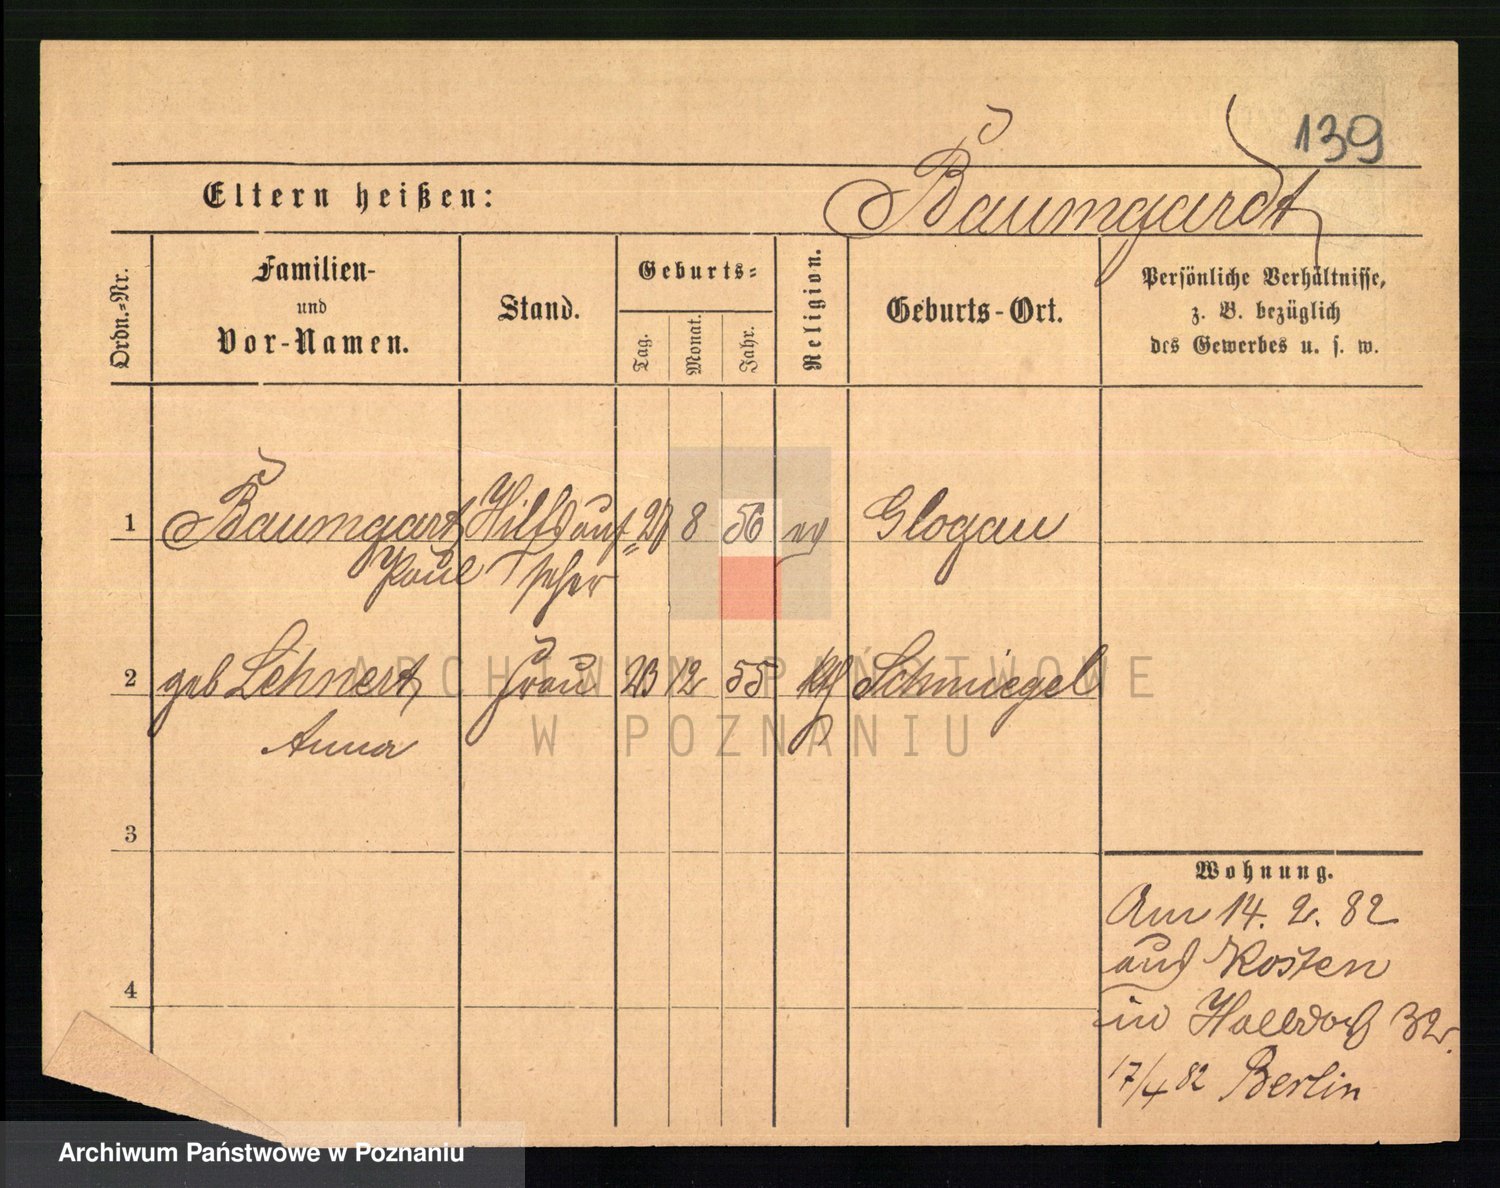 139
Eltern heißen: Baumgardt
Ordn.-Nr.
Familien-
und
Vor-Namen.
Stand.
Geburts-
Tag.
Monat.
Jahr.
Religion.
Geburts-Ort.
Persönliche Verhältnisse,
z. B. bezüglich
des Gewerbes u. s. w.
1 Baumgart Hilfsauf= 27 8 56 ev Glogau
Paul seher
2 geb Lehnert Frau 23 12 55 kth Schmiegel
Anna
3
4
Wohnung.
Am 14. 2. 82
aus Kosten
in Halldorf 32.
17/4 82 Berlin
ARCHIWUM PAŃSTWOWE
W POZNANIU
Archiwum Państwowe w Poznaniu